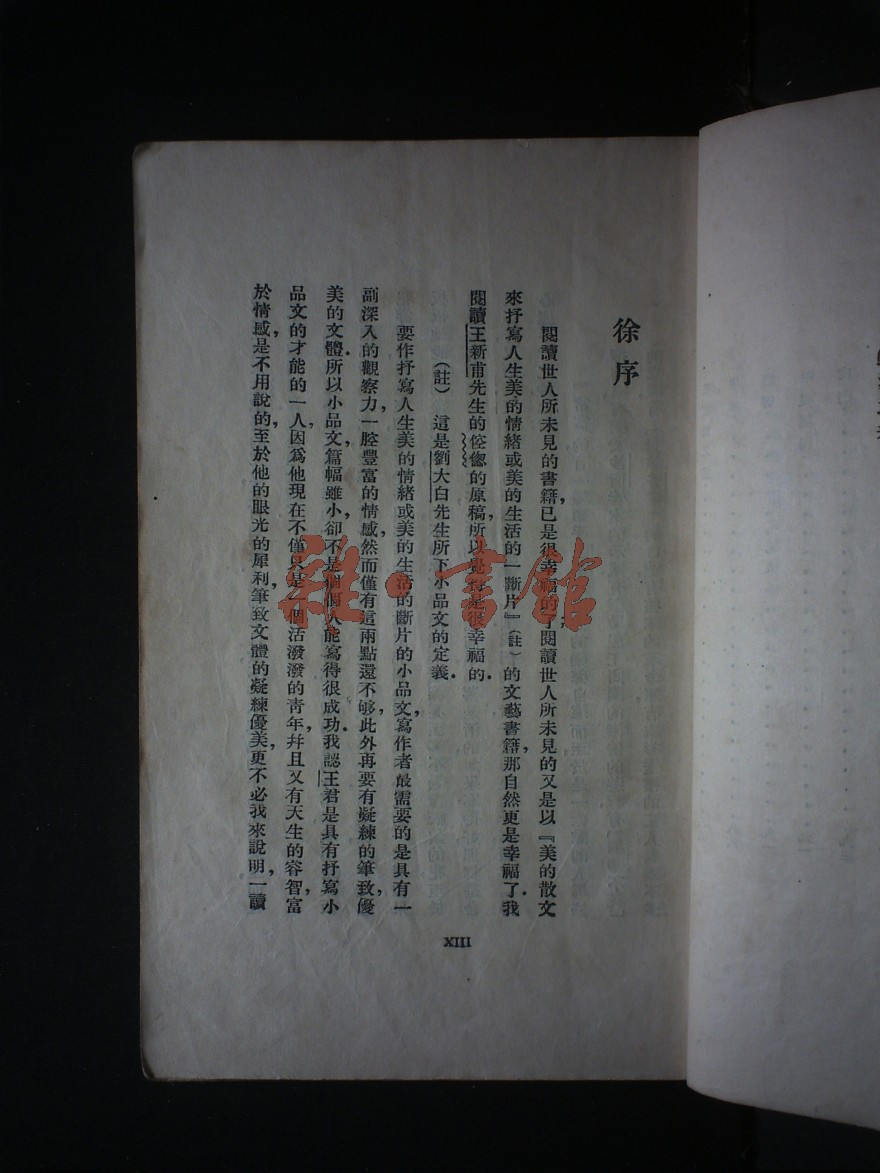 徐序
閱讀世人所未見的書籍，已是很幸福的了，閱讀世人所未見的又是以『美的散文
來抒寫人生美的情緒或美的生活的一斷片』（註）的文藝書籍，那自然更是幸福了．我
閱讀王新甫先生的倥傯的原稿，所以覺得是很幸福的．
（註）　這是劉大白先生所下小品文的定義．
要作抒寫人生美的情緒或美的生活的斷片的小品文，寫作者最需要的是具有一
副深入的觀察力，一腔豐富的情感，然而僅有這兩點還不够，此外再要有凝練的筆致，優
美的文體．所以小品文篇幅雖小，卻不是個個人能寫得很成功．我認王君是具有抒寫小
品文的才能的一人，因爲他現在不僅只是一個活潑潑的青年，幷且又有天生的容智，富
於情感，是不用說的，至於他的眼光的犀利，筆致文體的凝練優美，更不必我來說明，一讀
XIII
雜·書館